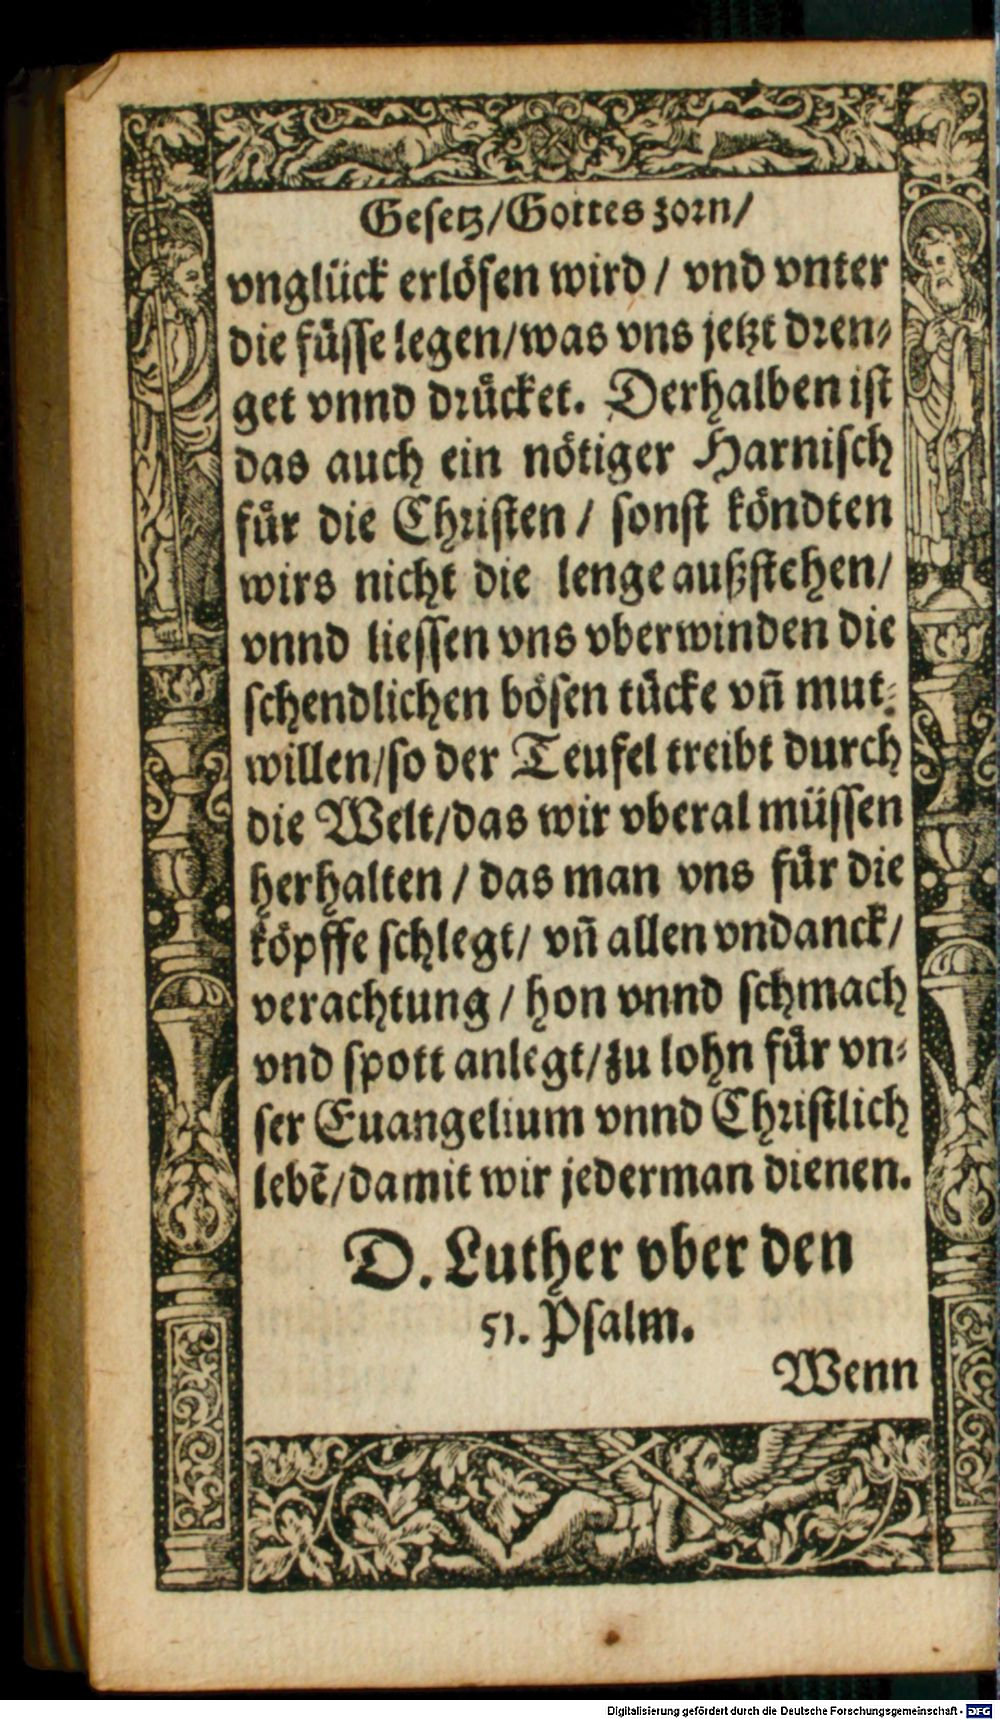 Gesetz/Gottes zorn/
vnglück erlösen wird / vnd vnter
die füsse legen/was vns jetzt dren⸗
get vnnd drücket. Derhalben ist
das auch ein nötiger Harnisch
für die Christen / sonst köndten
wirs nicht die lenge außstehen/
vnnd liessen vns vberwinden die
schendlichen bösen tücke vñ mut⸗
willen/so der Teufel treibt durch
die Welt/das wir vberal müssen
herhalten / das man vns für die
köpffe schlegt/ vñ allen vndanck/
verachtung / hon vnnd schmach
vnd spott anlegt/zu lohn für vn⸗
ser Euangelium vnnd Christlich
lebẽ/damit wir jederman dienen.
D. Luther vber den
51. Psalm.
Wenn
Digitalisierung gefördert durch die Deutsche Forschungsgemeinschaft - DFG